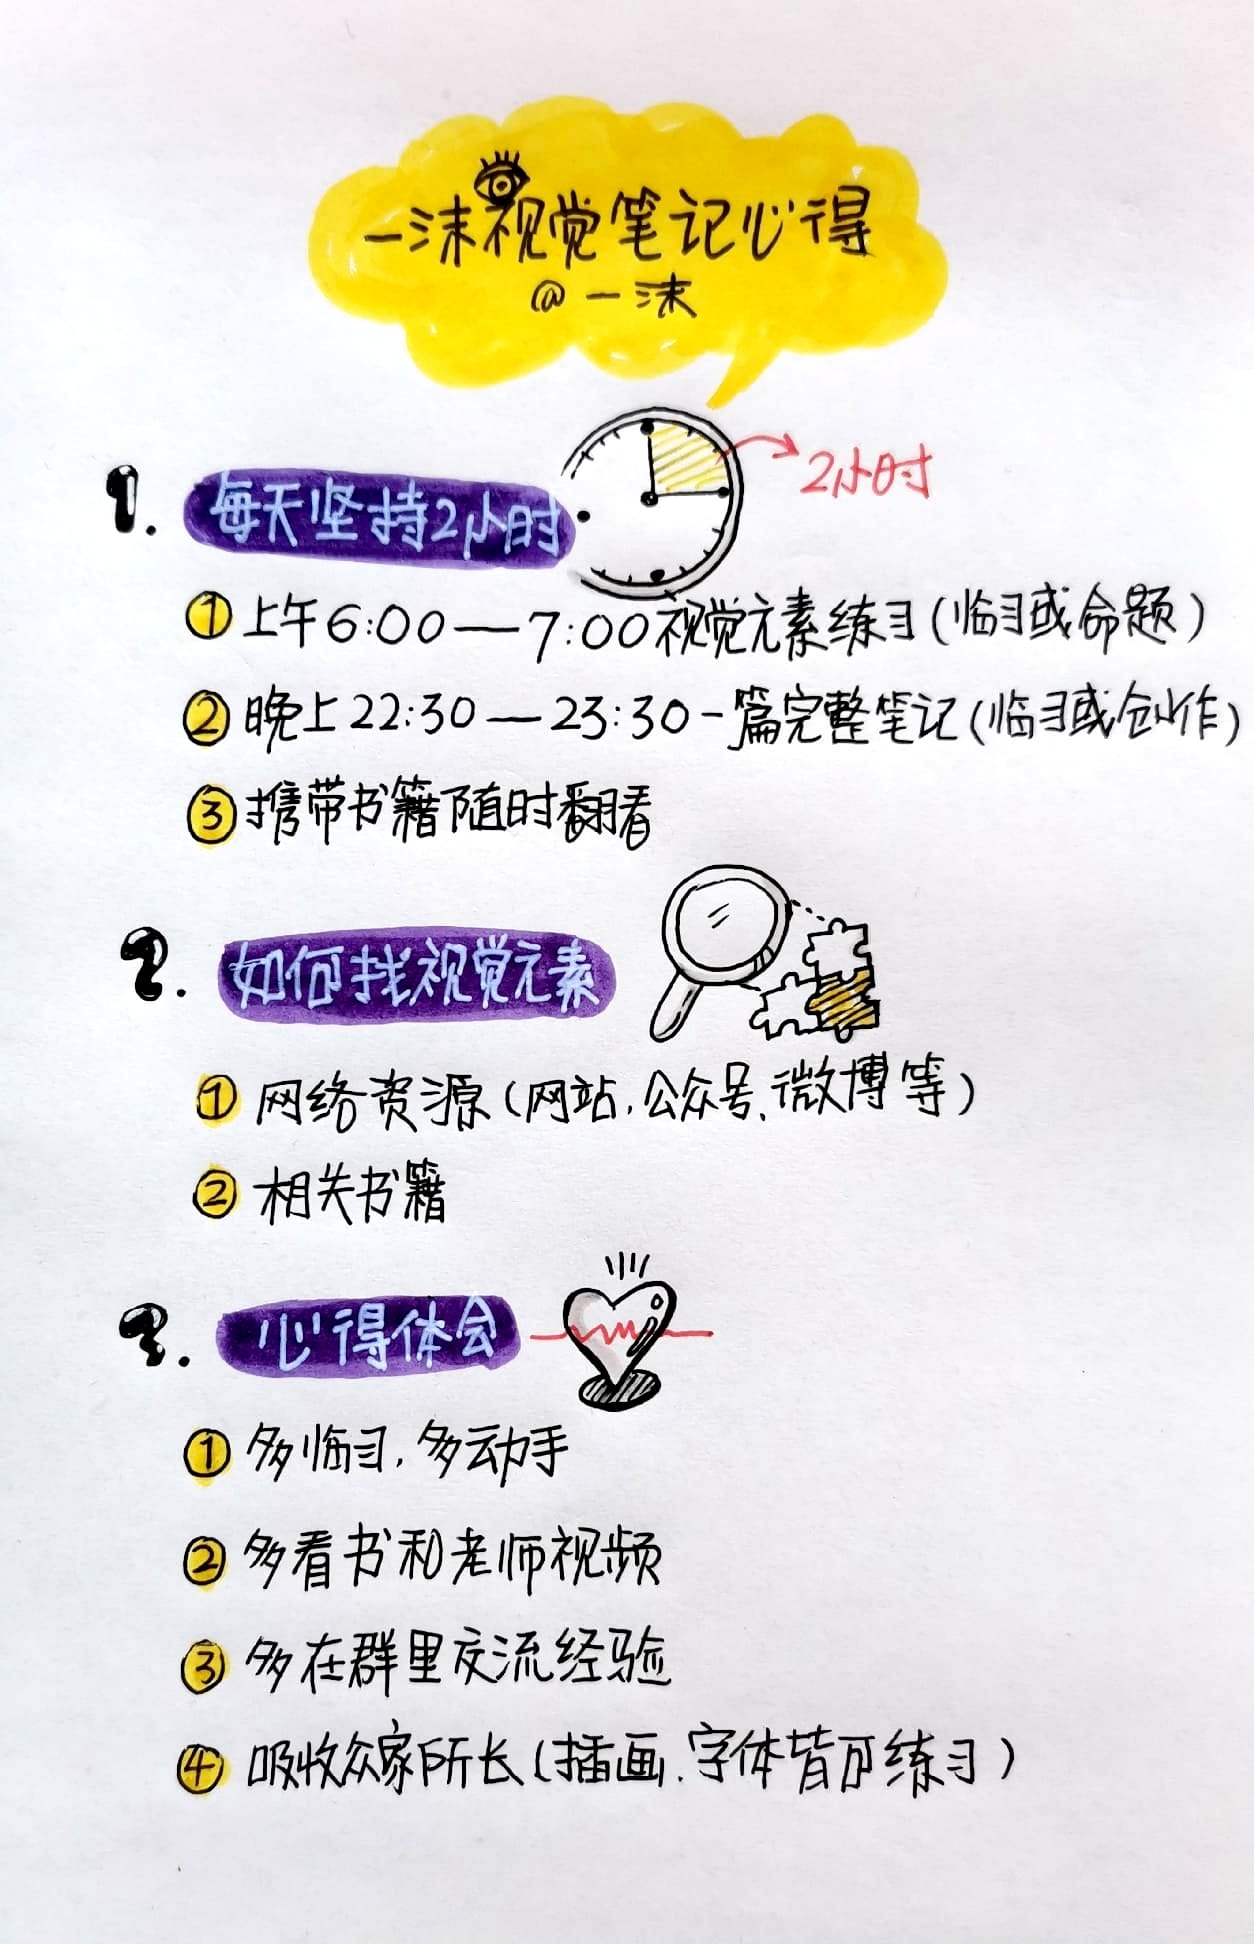 一沫视觉笔记心得
@一沫
2小时
1. 每天坚持2小时
① 上午6:00—7:00视觉元素练习(临习或命题)
② 晚上22:30—23:30一篇完整笔记(临习或创作)
③ 携带书籍随时翻看
2. 如何找视觉元素
① 网络资源(网站,公众号、微博等)
② 相关书籍
3. 心得体会
① 多临习,多动手
② 多看书和老师视频
③ 多在群里交流经验
④ 吸收众家所长(插画、字体皆可练习)